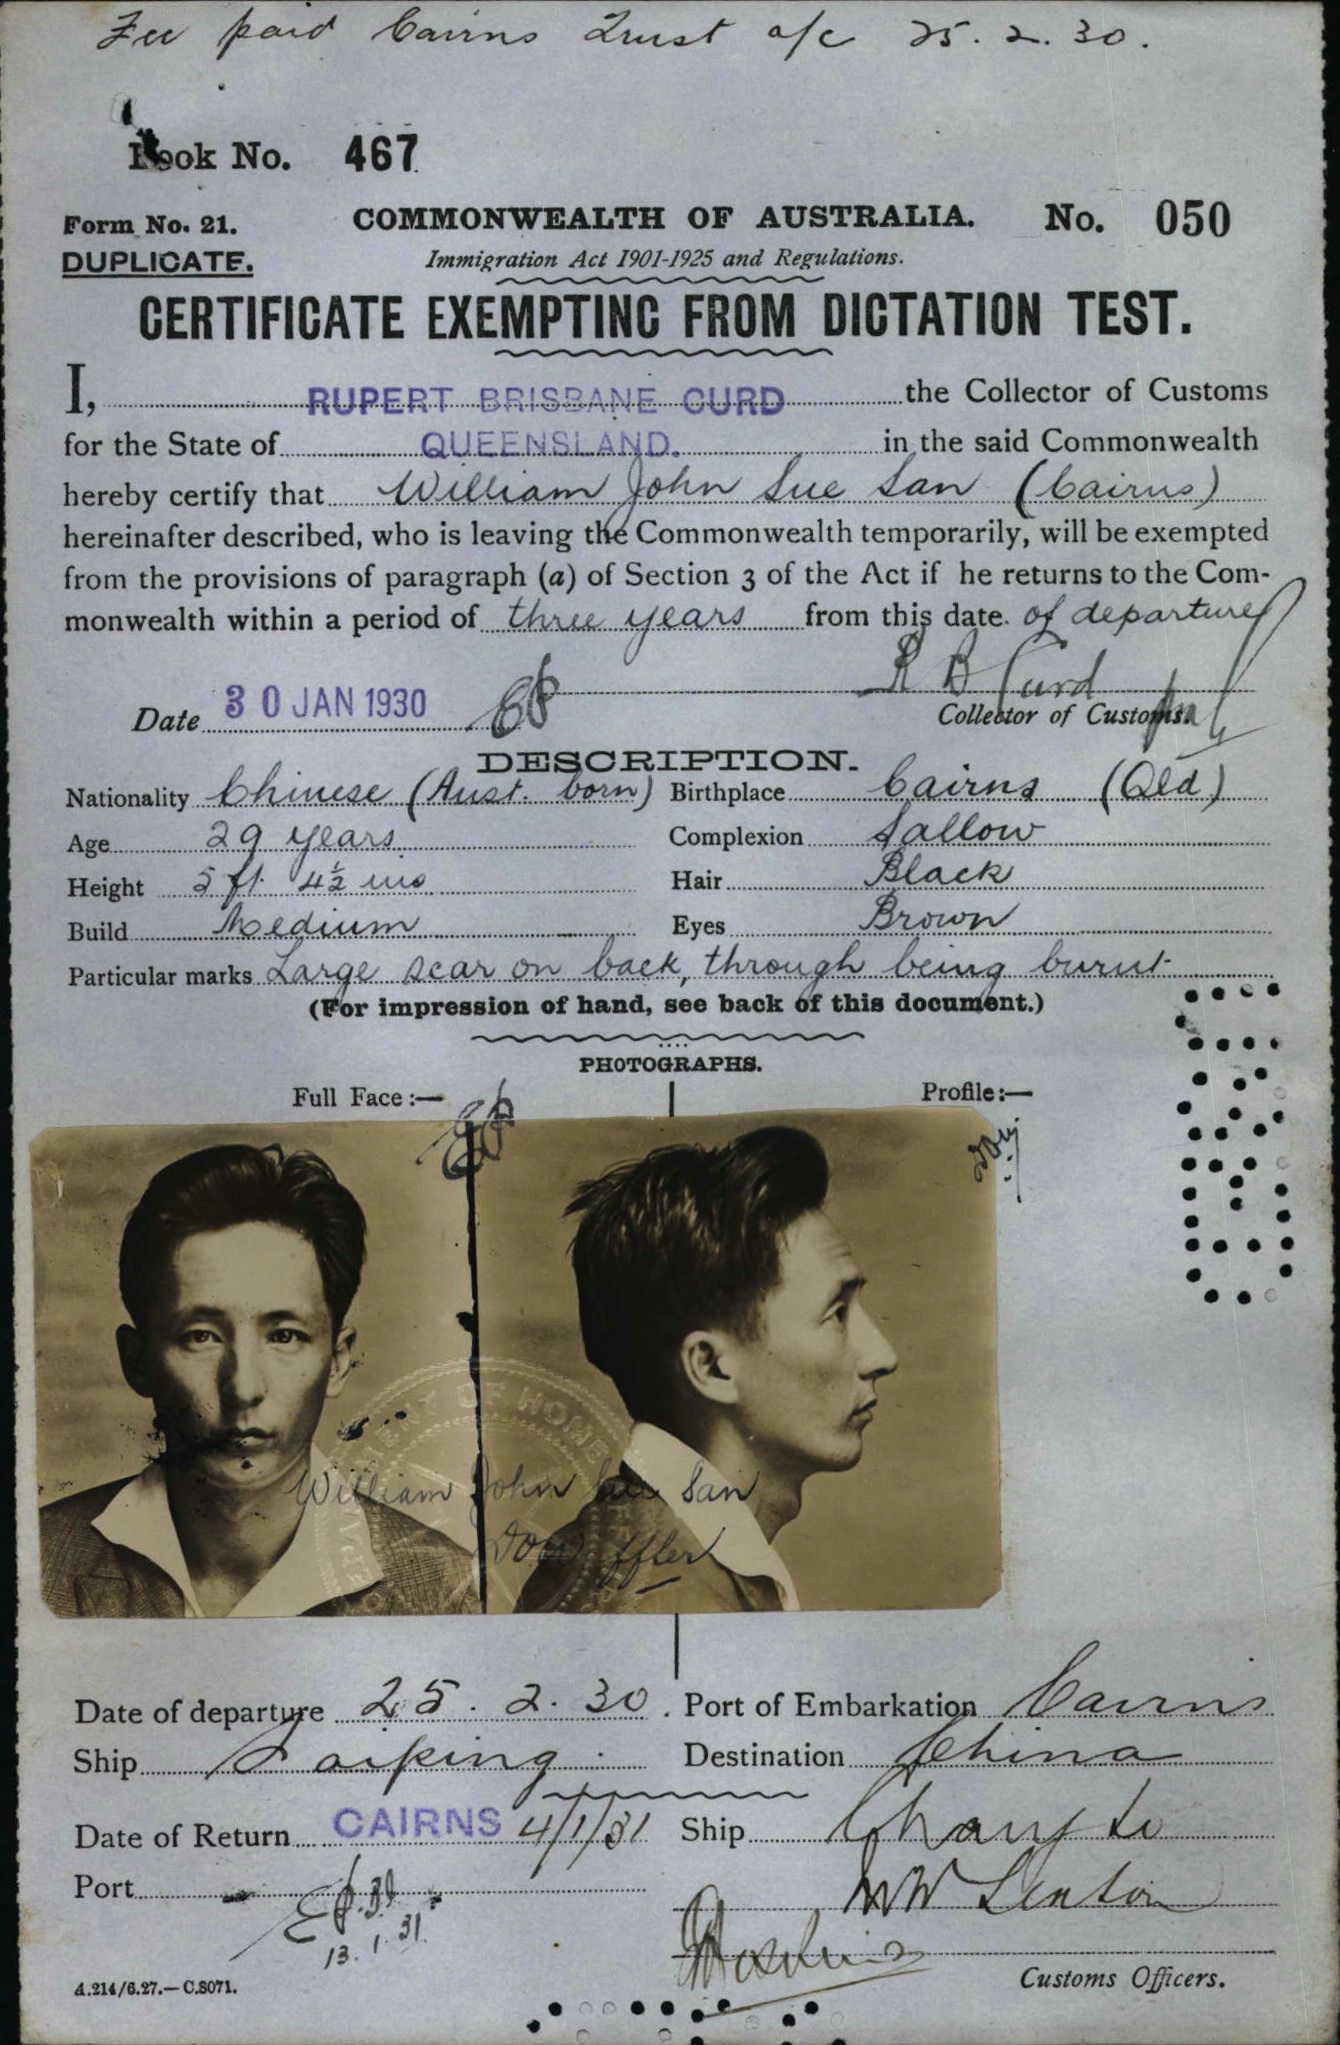 Fee paid Cairns Trust a/c 25.2.30.
Book No. 467
Form No. 21. COMMONWEALTH OF AUSTRALIA. No. 050
DUPLICATE. Immigration Act 1901-1925 and Regulations.
CERTIFICATE EXEMPTING FROM DICTATION TEST.
I, RUPERT BRISBANE CURD the Collector of Customs
for the State of QUEENSLAND. in the said Commonwealth
hereby certify that William John Sue San (Cairns)
hereinafter described, who is leaving the Commonwealth temporarily, will be exempted
from the provisions of paragraph (a) of Section 3 of the Act if he returns to the Com-
monwealth within a period of three years from this date of departure
R B Curd
Date 30 JAN 1930 Collector of Customs.
DESCRIPTION.
Nationality Chinese (Aust. born) Birthplace Cairns (Qld)
Age 29 years Complexion Sallow
Height 5 ft 4½ ins Hair Black
Build Medium Eyes Brown
Particular marks Large scar on back, through being burnt
(For impression of hand, see back of this document.)
PHOTOGRAPHS.
Full Face:— Profile:—
OF HOME
William John Sue San
Date of departure 25.2.30. Port of Embarkation Cairns
Ship Taiping Destination China
Date of Return CAIRNS 4/1/31 Ship Changte
Port
13.1.31.
A.214/6.27.—C.8071. Customs Officers.